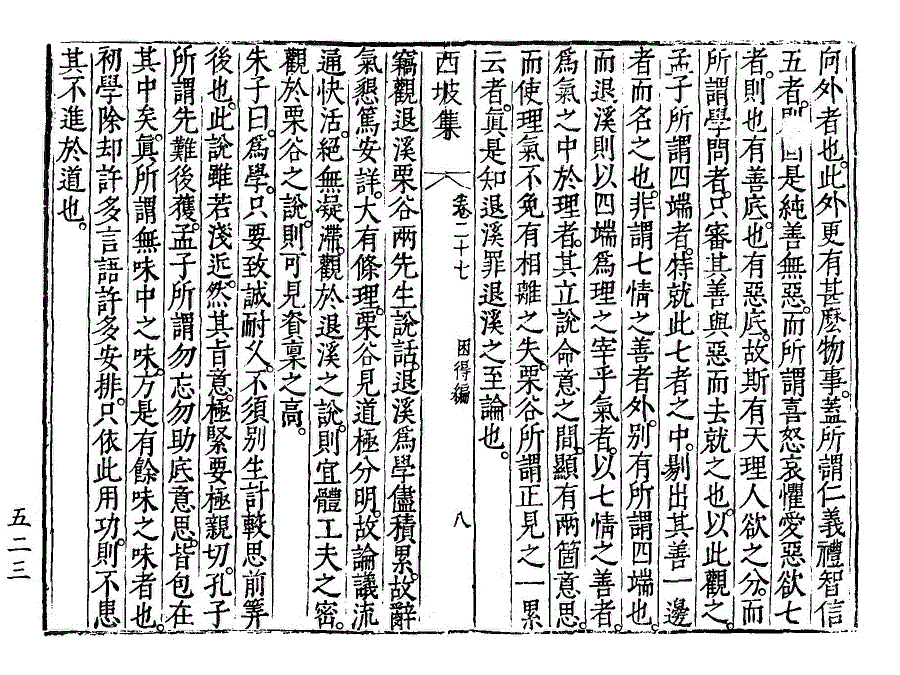 向外者也。此外更有甚麽物事。盖所謂仁義禮智信
五者。則固是純善無惡。而所謂喜怒哀懼愛惡欲七
者。則也有善底。也有惡底。故斯有天理人欲之分。而
所謂學問者。只審其善與惡而去就之也。以此觀之。
孟子所謂四端者。特就此七者之中。剔出其善一邊
者而名之也。非謂七情之善者外。別有所謂四端也。
而退溪則以四端爲理之宰乎氣者。以七情之善者。
爲氣之中於理者。其立說命意之間。顯有兩箇意思。
而使理氣不免有相離之失。栗谷所謂正見之一累
云者。眞是知退溪罪退溪之至論也。
西坡集 卷二十七 困得編 八
竊觀退溪栗谷兩先生說話。退溪爲學儘積累。故辭
氣懇篤安詳。大有條理。栗谷見道極分明。故論議流
通快活。絕無凝滯。觀於退溪之說。則宜體工夫之密。
觀於栗谷之說。則可見資稟之高。
朱子曰。爲學。只要致誠耐久。不須別生計較思前筭
後也。此說雖若淺近。然其旨意。極緊要極親切。孔子
所謂先難後獲。孟子所謂勿忘勿助底意思。皆包在
其中矣。眞所謂無味中之味。方是有餘味之味者也。
初學除却許多言語許多安排。只依此用功。則不患
其不進於道也。
五二三